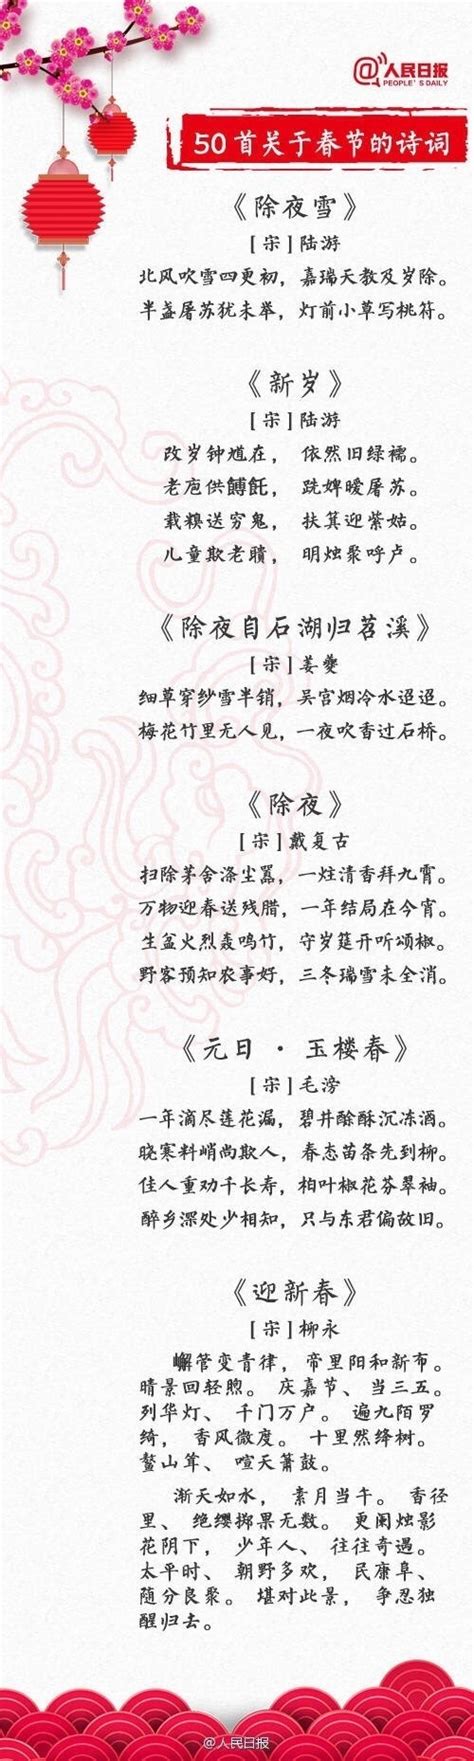 @人民日报
PEOPLE'S DAILY
50首关于春节的诗词
《除夜雪》
[宋]陆游
北风吹雪四更初，嘉瑞天教及岁除。
半盏屠苏犹未举，灯前小草写桃符。
《新岁》
[宋]陆游
改岁钟馗在， 依然旧绿襦。
老庖供餺飥， 跣婢暖屠苏。
载糗送穷鬼， 扶箕迎紫姑。
儿童欺老聩， 明烛聚呼卢。
《除夜自石湖归苕溪》
[宋]姜夔
细草穿纱雪半销，吴宫烟冷水迢迢。
梅花竹里无人见，一夜吹香过石桥。
《除夜》
[宋]戴复古
扫除茅舍涤尘嚣，一炷清香拜九霄。
万物迎春送残腊，一年结局在今宵。
生盆火烈轰鸣竹，守岁筵开听颂椒。
野客预知农事好，三冬瑞雪未全消。
《元日 · 玉楼春》
[宋]毛滂
一年滴尽莲花漏，碧井酴酥沉冻酒。
晓寒料峭尚欺人，春态苗条先到柳。
佳人重劝千长寿，柏叶椒花芬翠袖。
醉乡深处少相知，只与东君偏故旧。
《迎新春》
[宋]柳永
嶰管变青律，帝里阳和新布。
晴景回轻煦。 庆嘉节、 当三五。
列华灯、 千门万户。 遍九陌罗
绮， 香风微度。 十里然绛树。
鳌山耸、 喧天箫鼓。
渐天如水， 素月当午。 香径
里、 绝缨掷果无数。 更阑烛影
花阴下， 少年人、 往往奇遇。
太平时、 朝野多欢， 民康阜、
随分良聚。 堪对此景， 争忍独
醒归去。
@人民日报